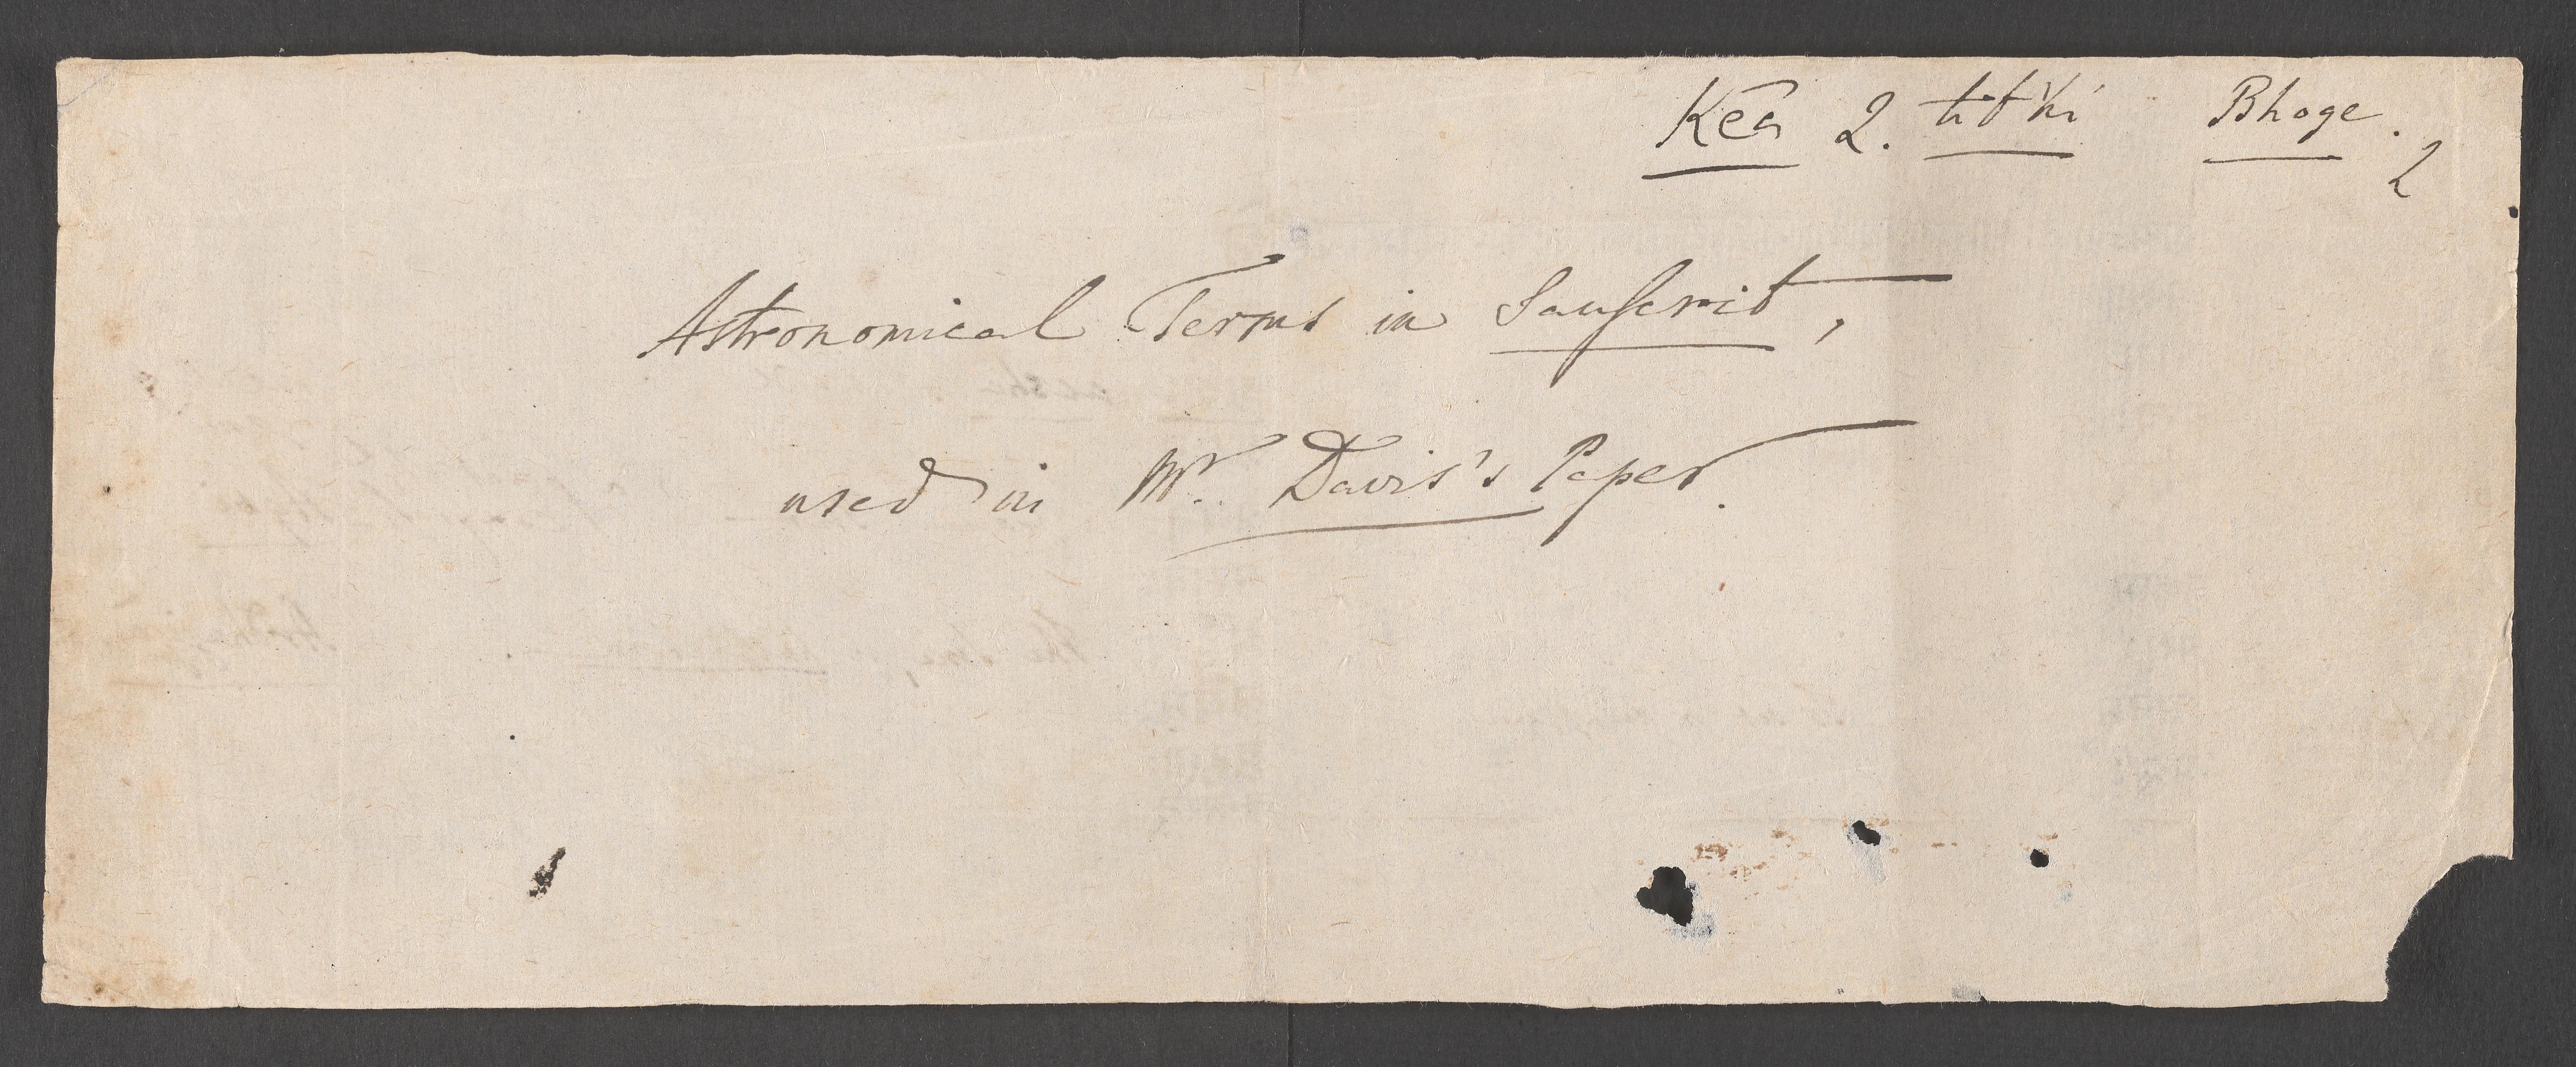 Kēā 2. tit'hi Bhoge.
2
Astronomical Terms in Sanscrit,
used in Mr. Davis's Paper.